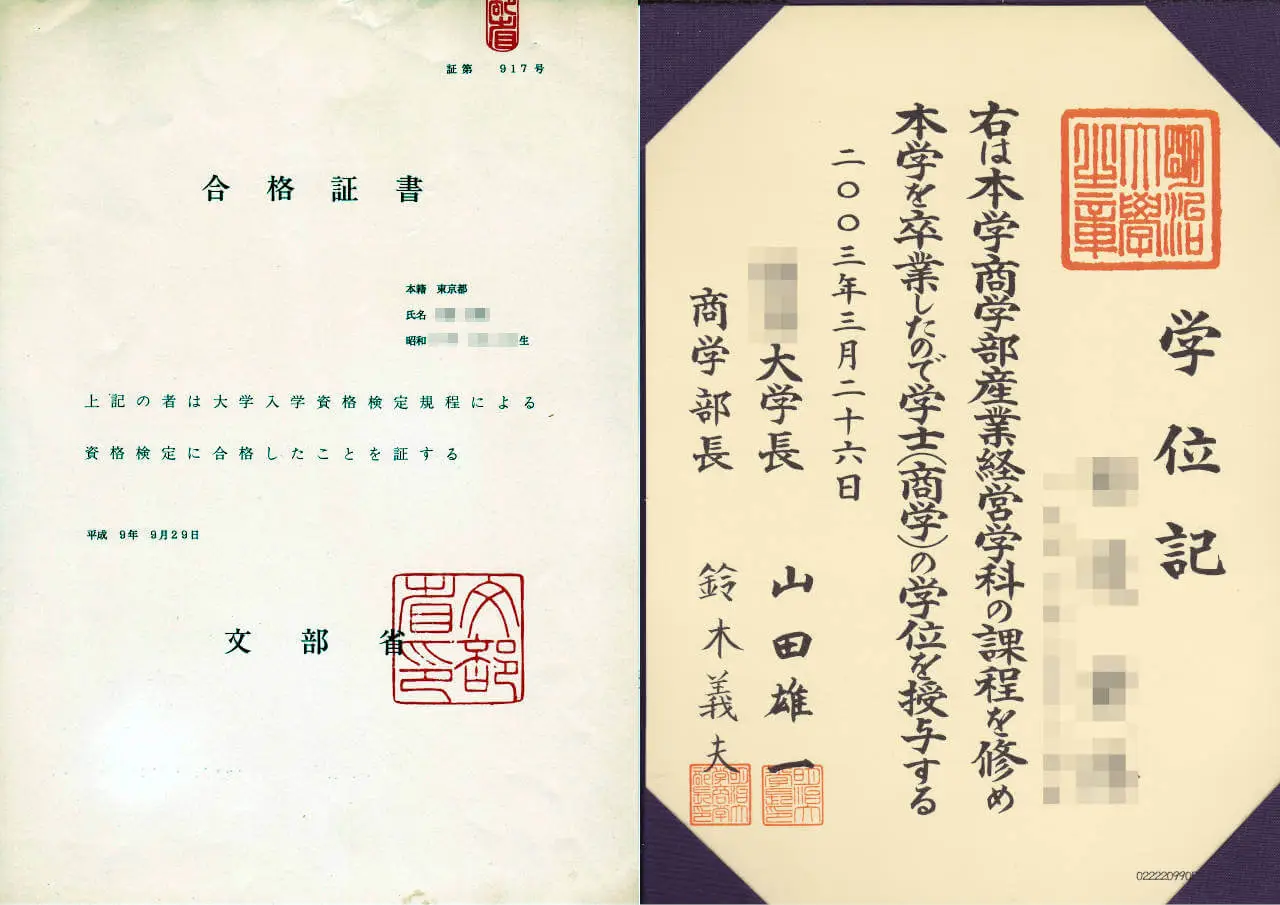 証第 917号
合格証書
本籍 東京都
氏名
昭和 生
上記の者は大学入学資格検定規程による
資格検定に合格したことを証する
平成 9年 9月29日
文部省
文部省印
明治大學之章
学位記
右は本学商学部産業経営学科の課程を修め
本学を卒業したので学士(商学)の学位を授与する
二〇〇三年三月二十六日
大学長 山田雄一
商学部長 鈴木義夫